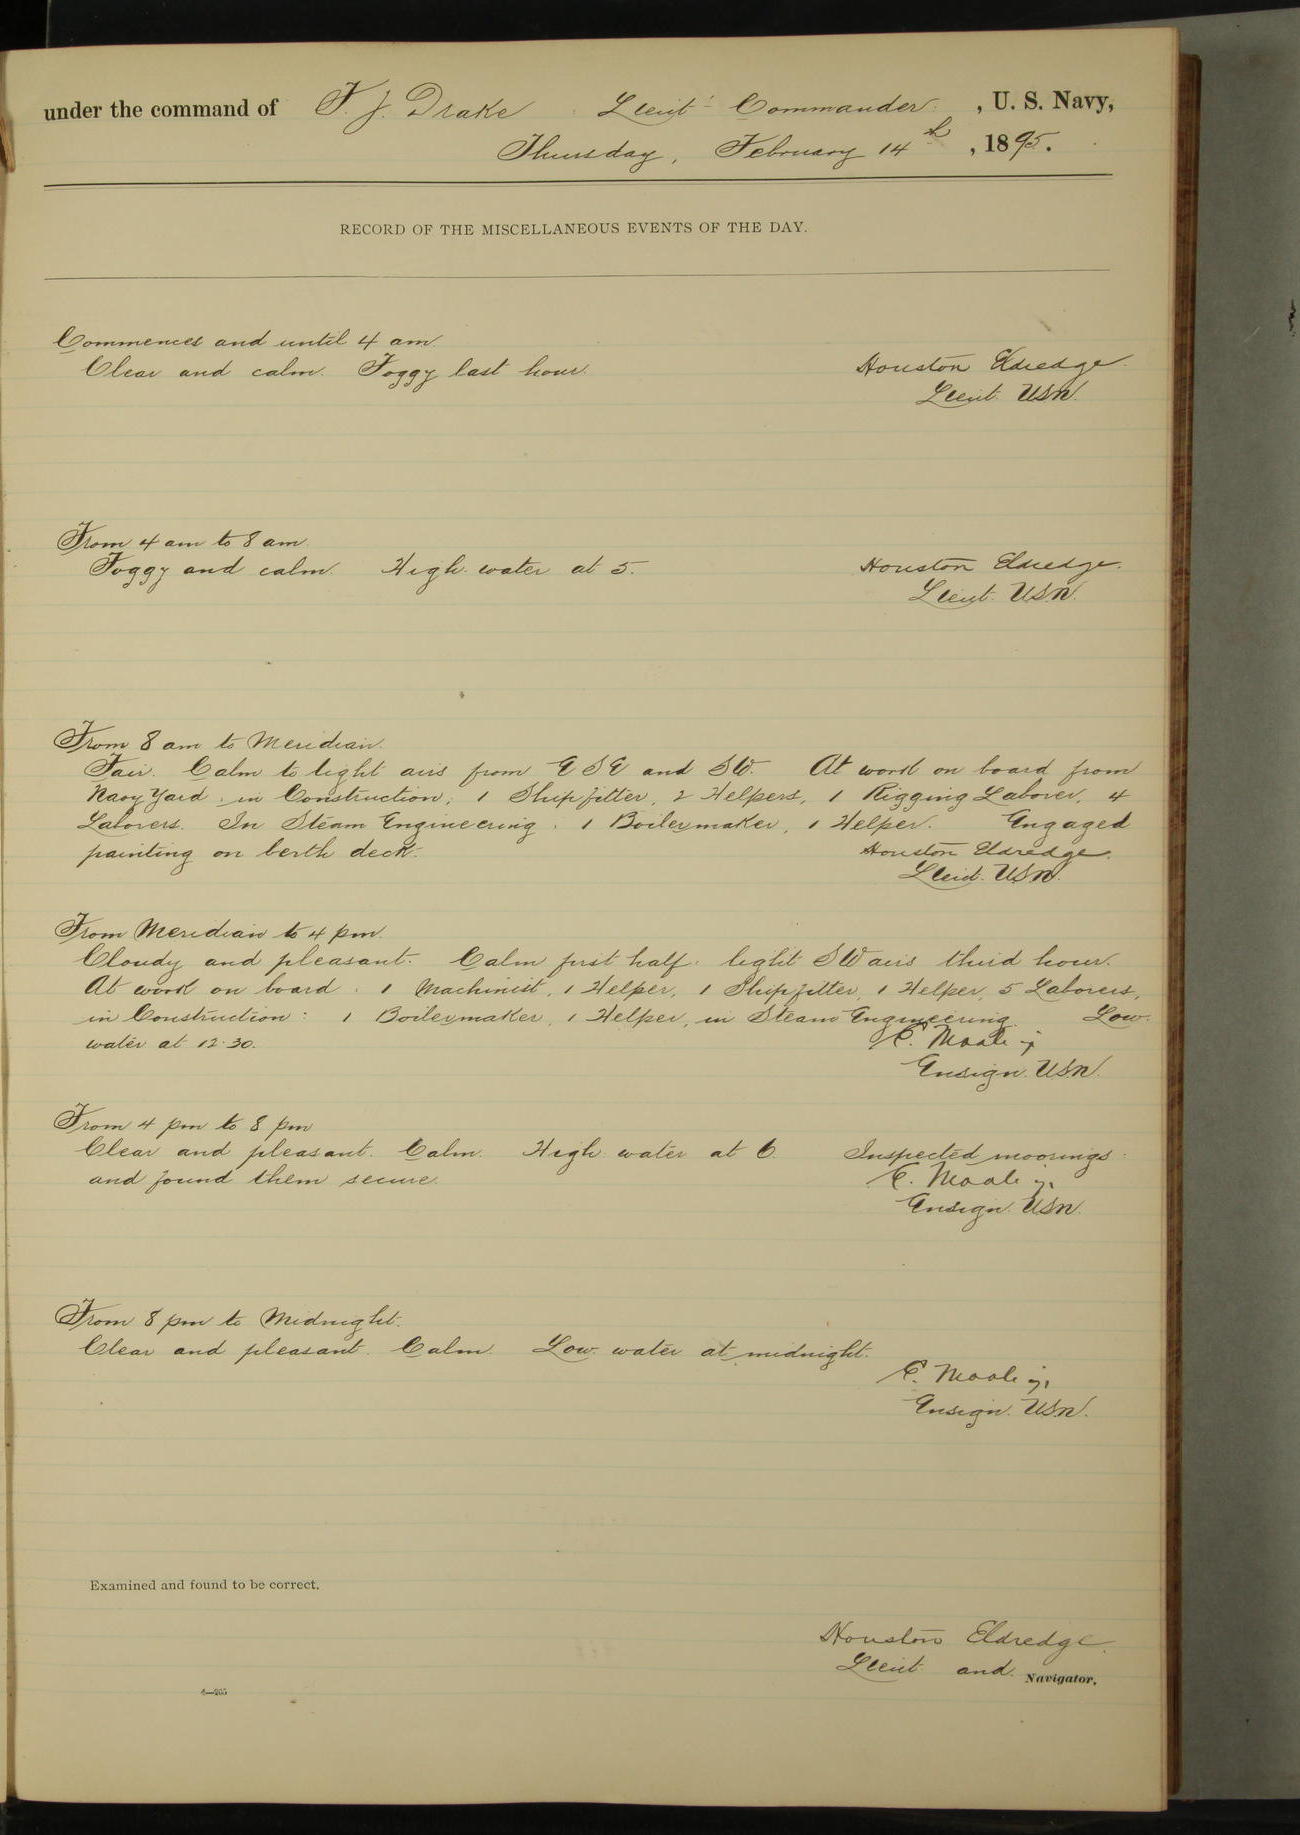 under the command of F. J. Drake Lieut Commander, U. S. Navy,
Thursday, February 14th, 1895.
RECORD OF THE MISCELLANEOUS EVENTS OF THE DAY.
Commences and until 4 am.
Clear and calm. Foggy last hour.
Houston Eldredge.
Lieut. USN.
From 4 am to 8 am.
Foggy and calm. High water at 5.
Houston Eldredge.
Lieut. USN.
From 8 am to Meridian.
Fair. Calm to light airs from ESE and SW. At work on board from
Navy Yard: in Construction; 1 Shipfitter, 2 Helpers, 1 Rigging Laborer, 4
Laborers. In Steam Engineering: 1 Boilermaker, 1 Helper. Engaged
painting on berth deck.
Houston Eldredge.
Lieut. USN.
From Meridian to 4 pm.
Cloudy and pleasant. Calm first half. light SW airs third hour.
At work on board: 1 Machinist, 1 Helper, 1 Shipfitter, 1 Helper, 5 Laborers,
in Construction: 1 Boilermaker, 1 Helper, in Steam Engineering. Low
water at 12.30.
E. Moale jr
Ensign. USN.
From 4 pm to 8 pm
Clear and pleasant. Calm. High water at 6. Inspected moorings
and found them secure.
E. Moale jr
Ensign. USN.
From 8 pm to Midnight.
Clear and pleasant. Calm. Low water at midnight.
E. Moale jr
Ensign. USN.
Examined and found to be correct.
Houston Eldredge.
Lieut and Navigator.
4—265